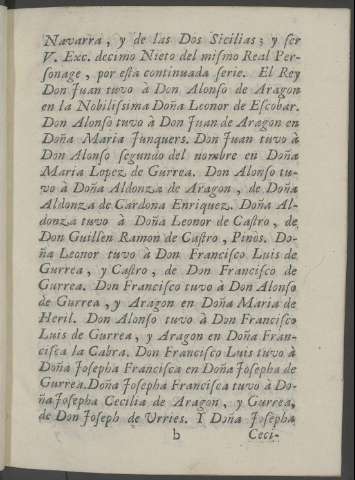 Navarra, y de las Dos Sicilias; y ser
V. Exc. decimo Nieto del mismo Real Per-
sonage, por esta continuada serie. El Rey
Don Juan tuvo à Don Alonso de Aragon
en la Nobilissima Doña Leonor de Escobar.
Don Alonso tuvo à Don Juan de Aragon en
Doña Maria Junquers. Don Juan tuvo à
Don Alonso segundo del nombre en Doña
Maria Lopez de Gurrea. Don Alonso tu-
vo à Doña Aldonza de Aragon, de Doña
Aldonza de Cardona Enriquez. Doña Al-
donza tuvo à Doña Leonor de Castro, de
Don Guillen Ramon de Castro, Pinos. Do-
ña Leonor tuvo à Don Francisco Luis de
Gurrea, y Castro, de Don Francisco de
Gurrea. Don Francisco tuvo à Don Alonso
de Gurrea, y Aragon en Doña Maria de
Heril. Don Alonso tuvo à Don Francisco
Luis de Gurrea, y Aragon en Doña Fran-
cisca la Cabra. Don Francisco Luis tuvo à
Doña Josepha Francisca en Doña Josepha de
Gurrea. Doña Josepha Francisca tuvo à Do-
ña Josepha Cecilia de Aragon, y Gurrea,
de Don Joseph de Urries. Y Doña Josepha
b Ceci-